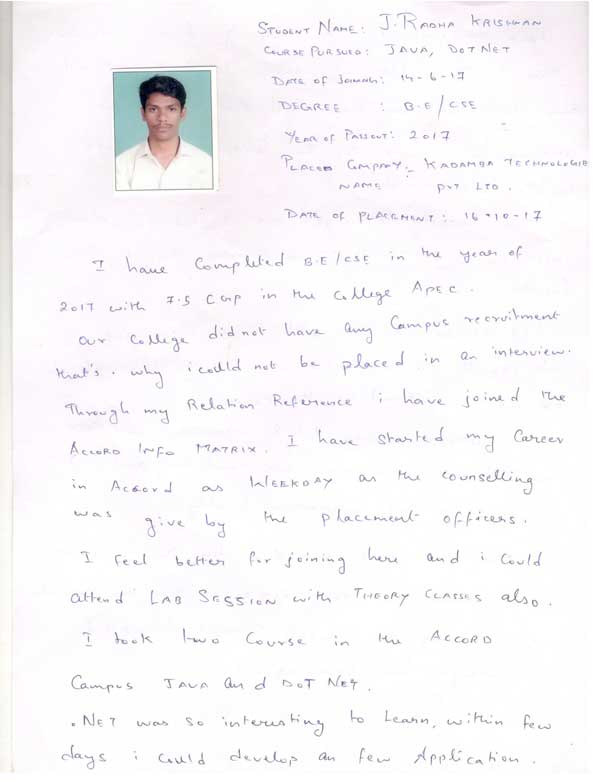 STUDENT NAME: J. RADHA KRISHNAN
COURSE PURSUED: JAVA, DOT NET
DATE OF JOINING: 14-6-17
DEGREE : B.E/CSE
YEAR OF PASSOUT: 2017
PLACED COMPANY:- KADAMBA TECHNOLOGIE
NAME PVT LTD.
DATE OF PLACEMENT: 16-10-17
I have Completed B.E/CSE in the year of
2017 with 7.5 CGP in the College APEC.
Our College did not have any Campus recruitment
that's. why i could not be placed in an interview.
Through my Relation Reference i have joined the
ACCORD INFO MATRIX. I have started my Career
in Accord as WEEKDAY as the counselling
was give by the placement officers.
I feel better for joining here and i Could
attend LAB SESSION with THEORY CLASSES also.
I took two Course in the ACCORD
Campus JAVA and DOT NET.
.NET was so interusting to learn, within few
days i could develop an few Application.